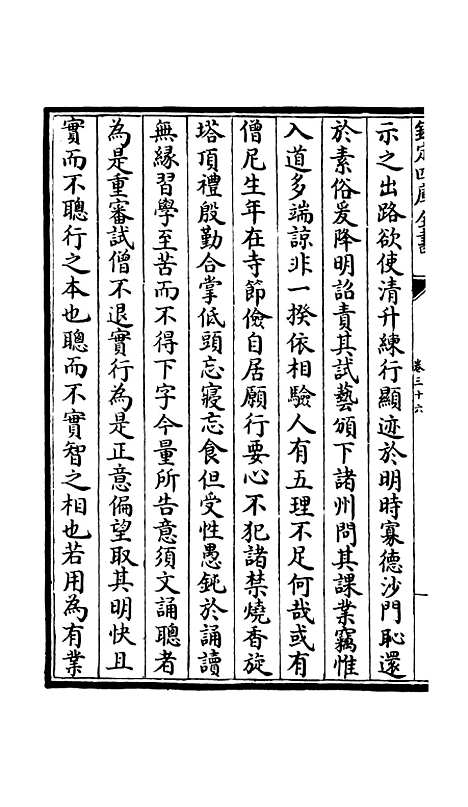 欽定四庫全書
卷三十六
示之出路欲使清升練行顯迹於明時寡德沙門恥還
於素俗爰降明詔責其試藝頒下諸州問其課業竊惟
入道多端諒非一揆依相驗人有五理不足何哉或有
僧尼生年在寺節儉自居願行要心不犯諸禁燒香旋
塔頂禮殷勤合掌低頭忘寢忘食但受性愚鈍於誦讀
無緣習學至苦而不得下字今量所告意須文誦聰者
為是重審試僧不退實行為是正意偏望取其明快且
實而不聰行之本也聰而不實智之相也若用為有業